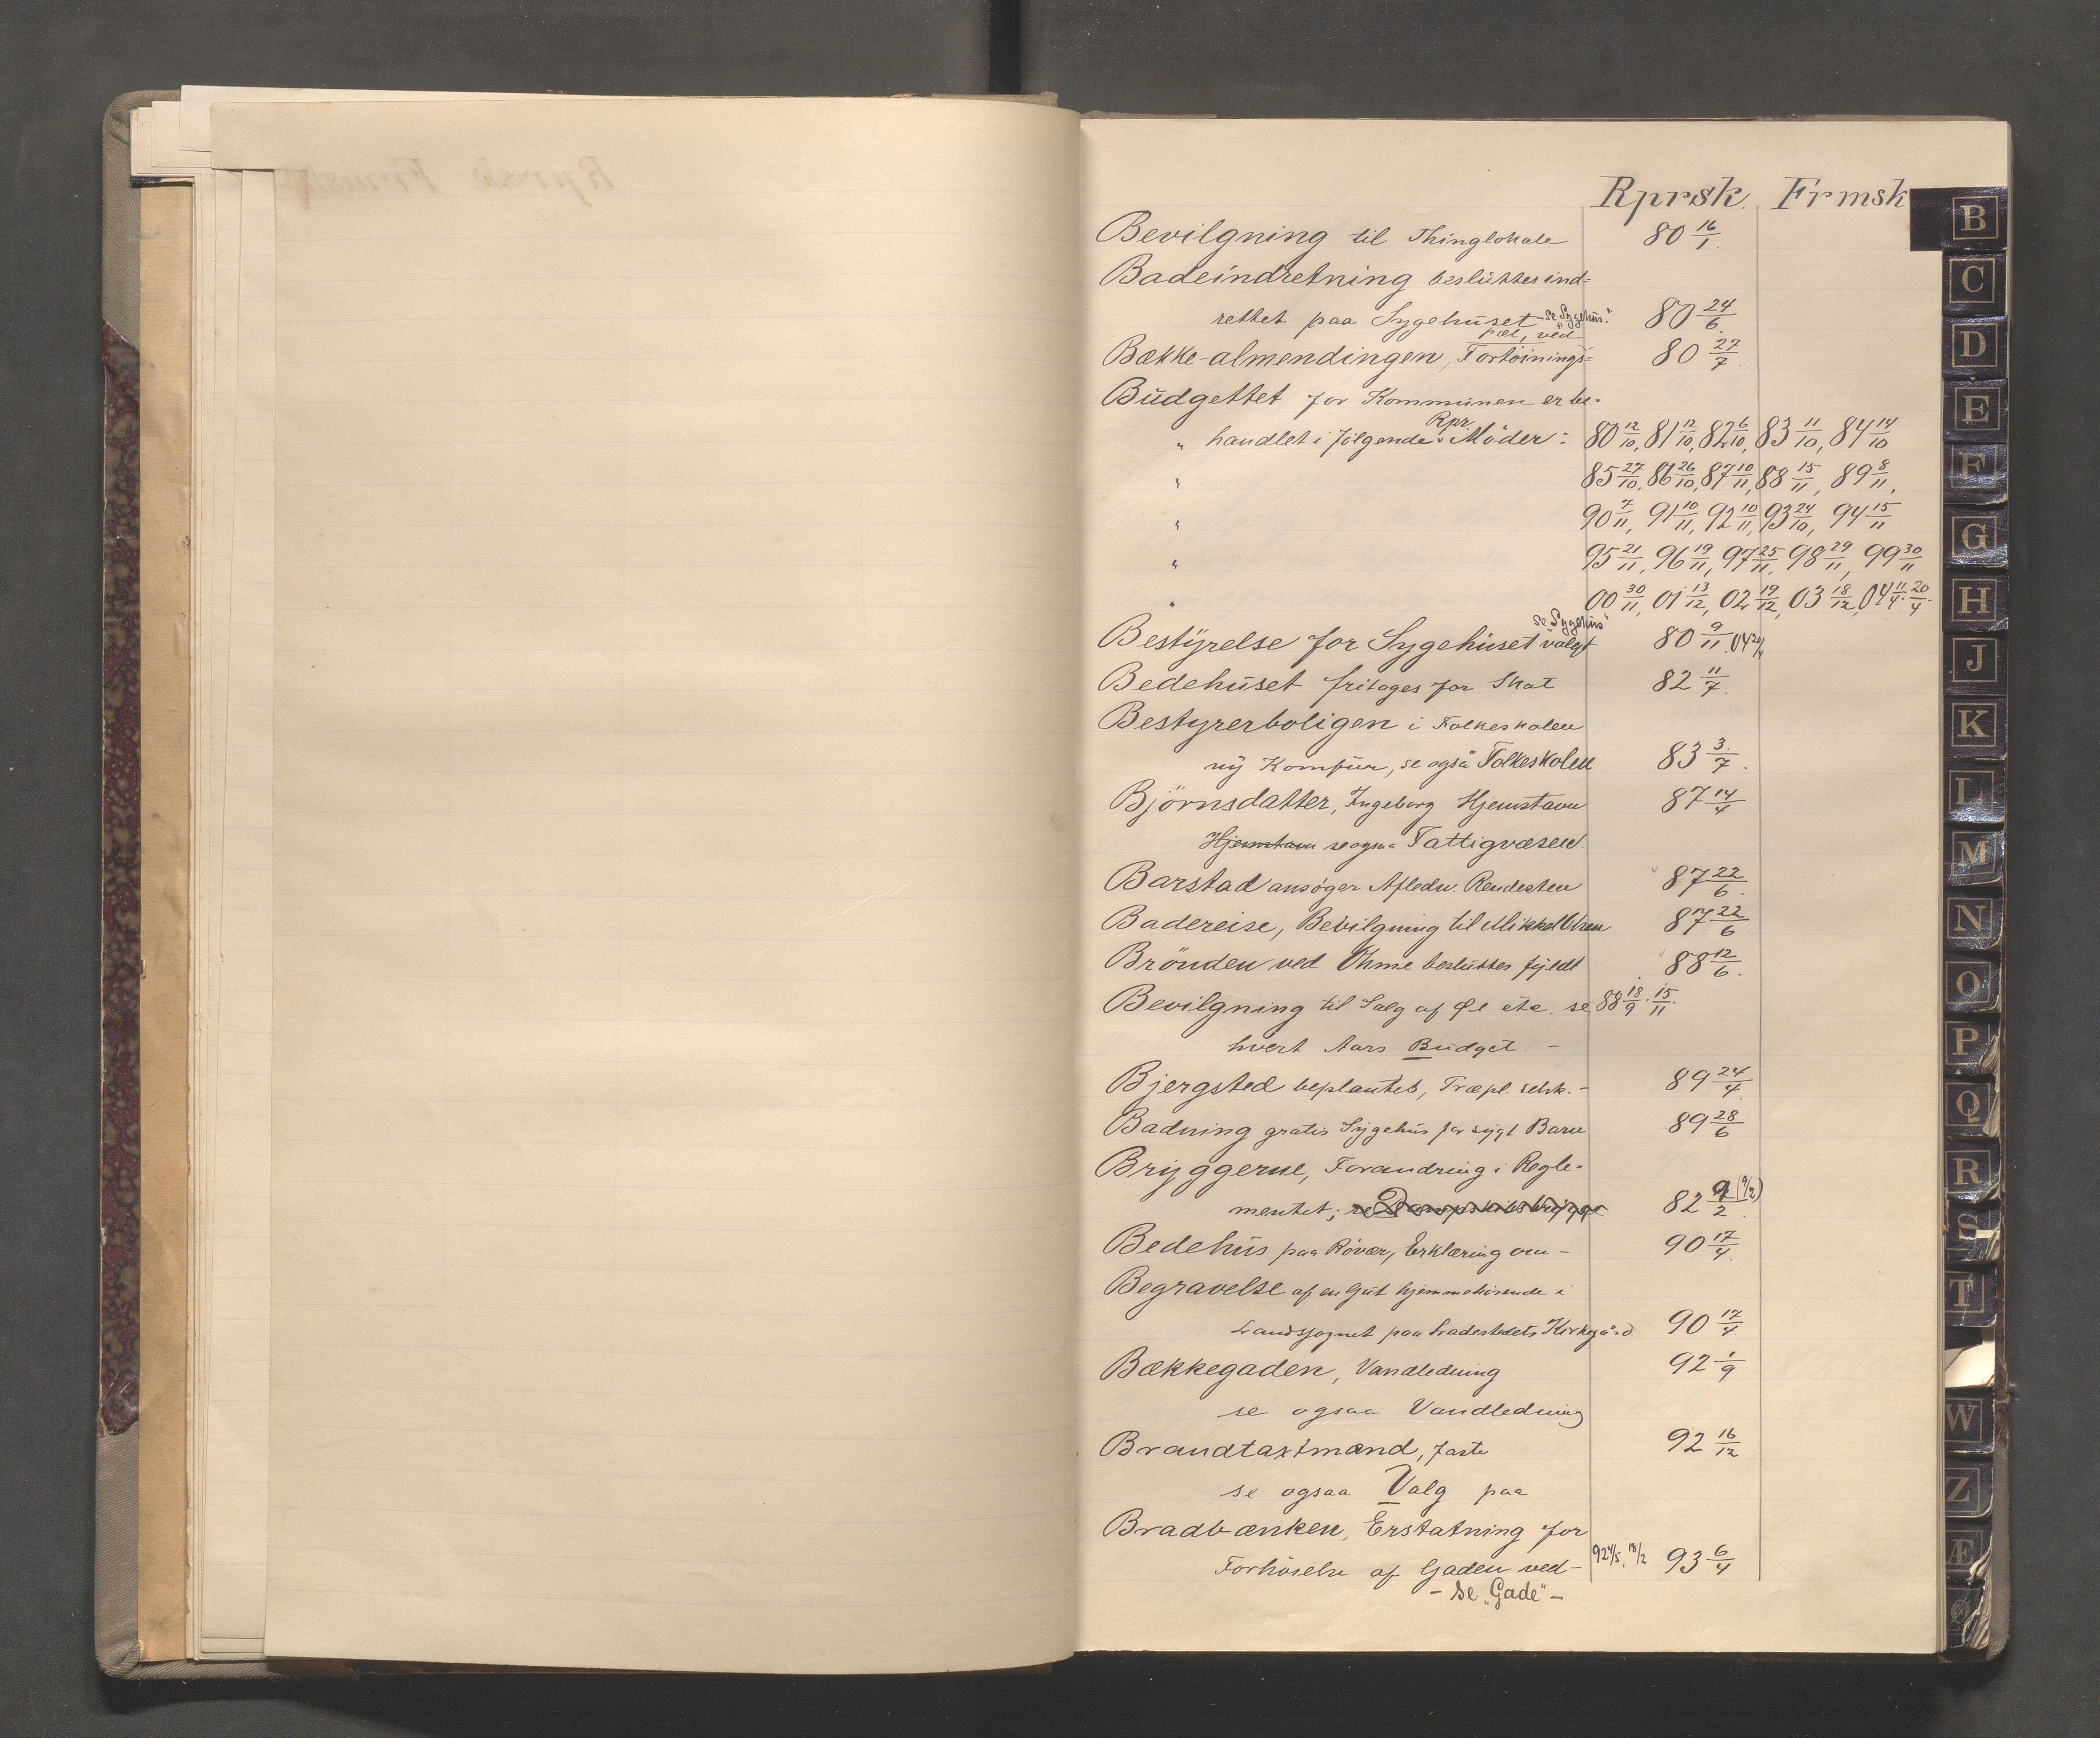 Rprsk. Frmsk
Bevilgning til Thinglokale 80 16/1.
Badeindretning besluttes ind-
rettet paa Sygehuset - se Sygehus." 80 24/6.
pæl, ved
Bække-almendingen, Fortöinings- 80 27/7.
Budgettet for Kommunen er be-
Rpr.
" handlet i følgende Möder: 80 12/10, 81 12/10, 82 6/10, 83 11/10, 84 14/10
" 85 27/10, 86 26/10, 87 10/11, 88 15/11, 89 8/11,
" 90 7/11, 91 10/11, 92 10/11, 93 24/10, 94 15/11
" 95 21/11, 96 19/11, 97 25/11, 98 29/11, 99 30/11
" 00 30/11, 01 13/12, 02 19/12, 03 18/12, 04 11/4. 20/4.
se Sygehus"
Bestyrelse for Sygehuset valgt 80 9/11. 04 20/4
Bedehuset fritages for Skat 82 11/7.
Bestyrerboligen i Folkeskolen
ny Komfur, se også Folkeskolen 83 3/7.
Björnsdatter, Ingeborg Hjemstavn 87 14/4
Hjemstavn se ogsaa Fattigvæsen.
Barstad ansøger Afledn. Rendesten 87 22/6.
Badereise, Bevilgning til Mikkel Olsen 87 22/6
Brönden ved Ohme besluttes fyldt 88 12/6.
Bevilgning til Salg af Øl etc. se 88 18/9. 15/11.
hvert Aars Budget. -
Bjergsted beplantes, Træpl. selsk. - 89 24/4.
Badning gratis Sygehus for sygt Barn 89 28/6
Bryggerne, Forandring i Regle-
mentet; se Dampskibsbrygge 82 9/2. (9/2)
Bedehus paa Röver, Erklæring om - 90 17/4.
Begravelse af en Gut hjemmehörende i
Landsognet paa Ladestedets Kirkegård 90 17/4
Bækkegaden, Vandledning 92 1/9
se ogsaa Vandledning
Brandtaxtmænd, faste 92 16/12
se ogsaa Valg paa
Bradbænken, Erstatning for
Forhöielse af Gaden ved - 92 4/5, 18/2 93 6/4
- se "Gade" -
B
C
D
E
F
G
H
J
K
L
M
N
O
P
Q
R
S
T
W
Z
Æ
Ø